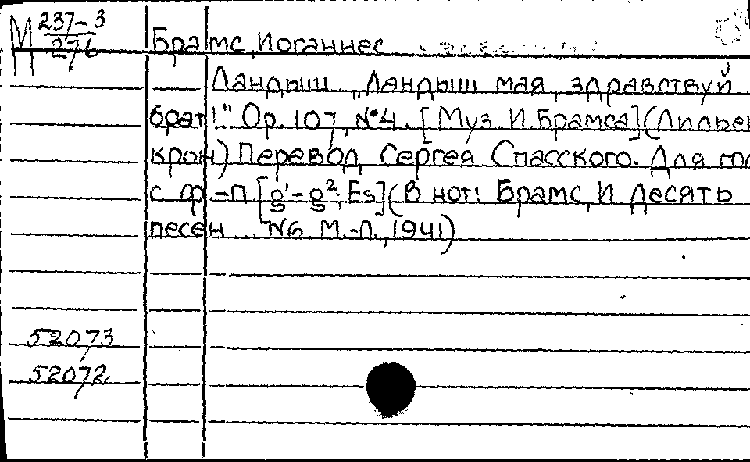 М 237-3
276
Брамс, Иоганнес
Ландыш „Ландыш мая, здравствуй
брат!" Op. 107, №4. [Муз. И. Брамса] (Лильен
крон) Перевод Сергея Спасского. Для го
с ф.-п. [g'-g², Es] (В нот: Брамс, И. Десять
песен... №6 М.-Л., 1941)
52073
52072